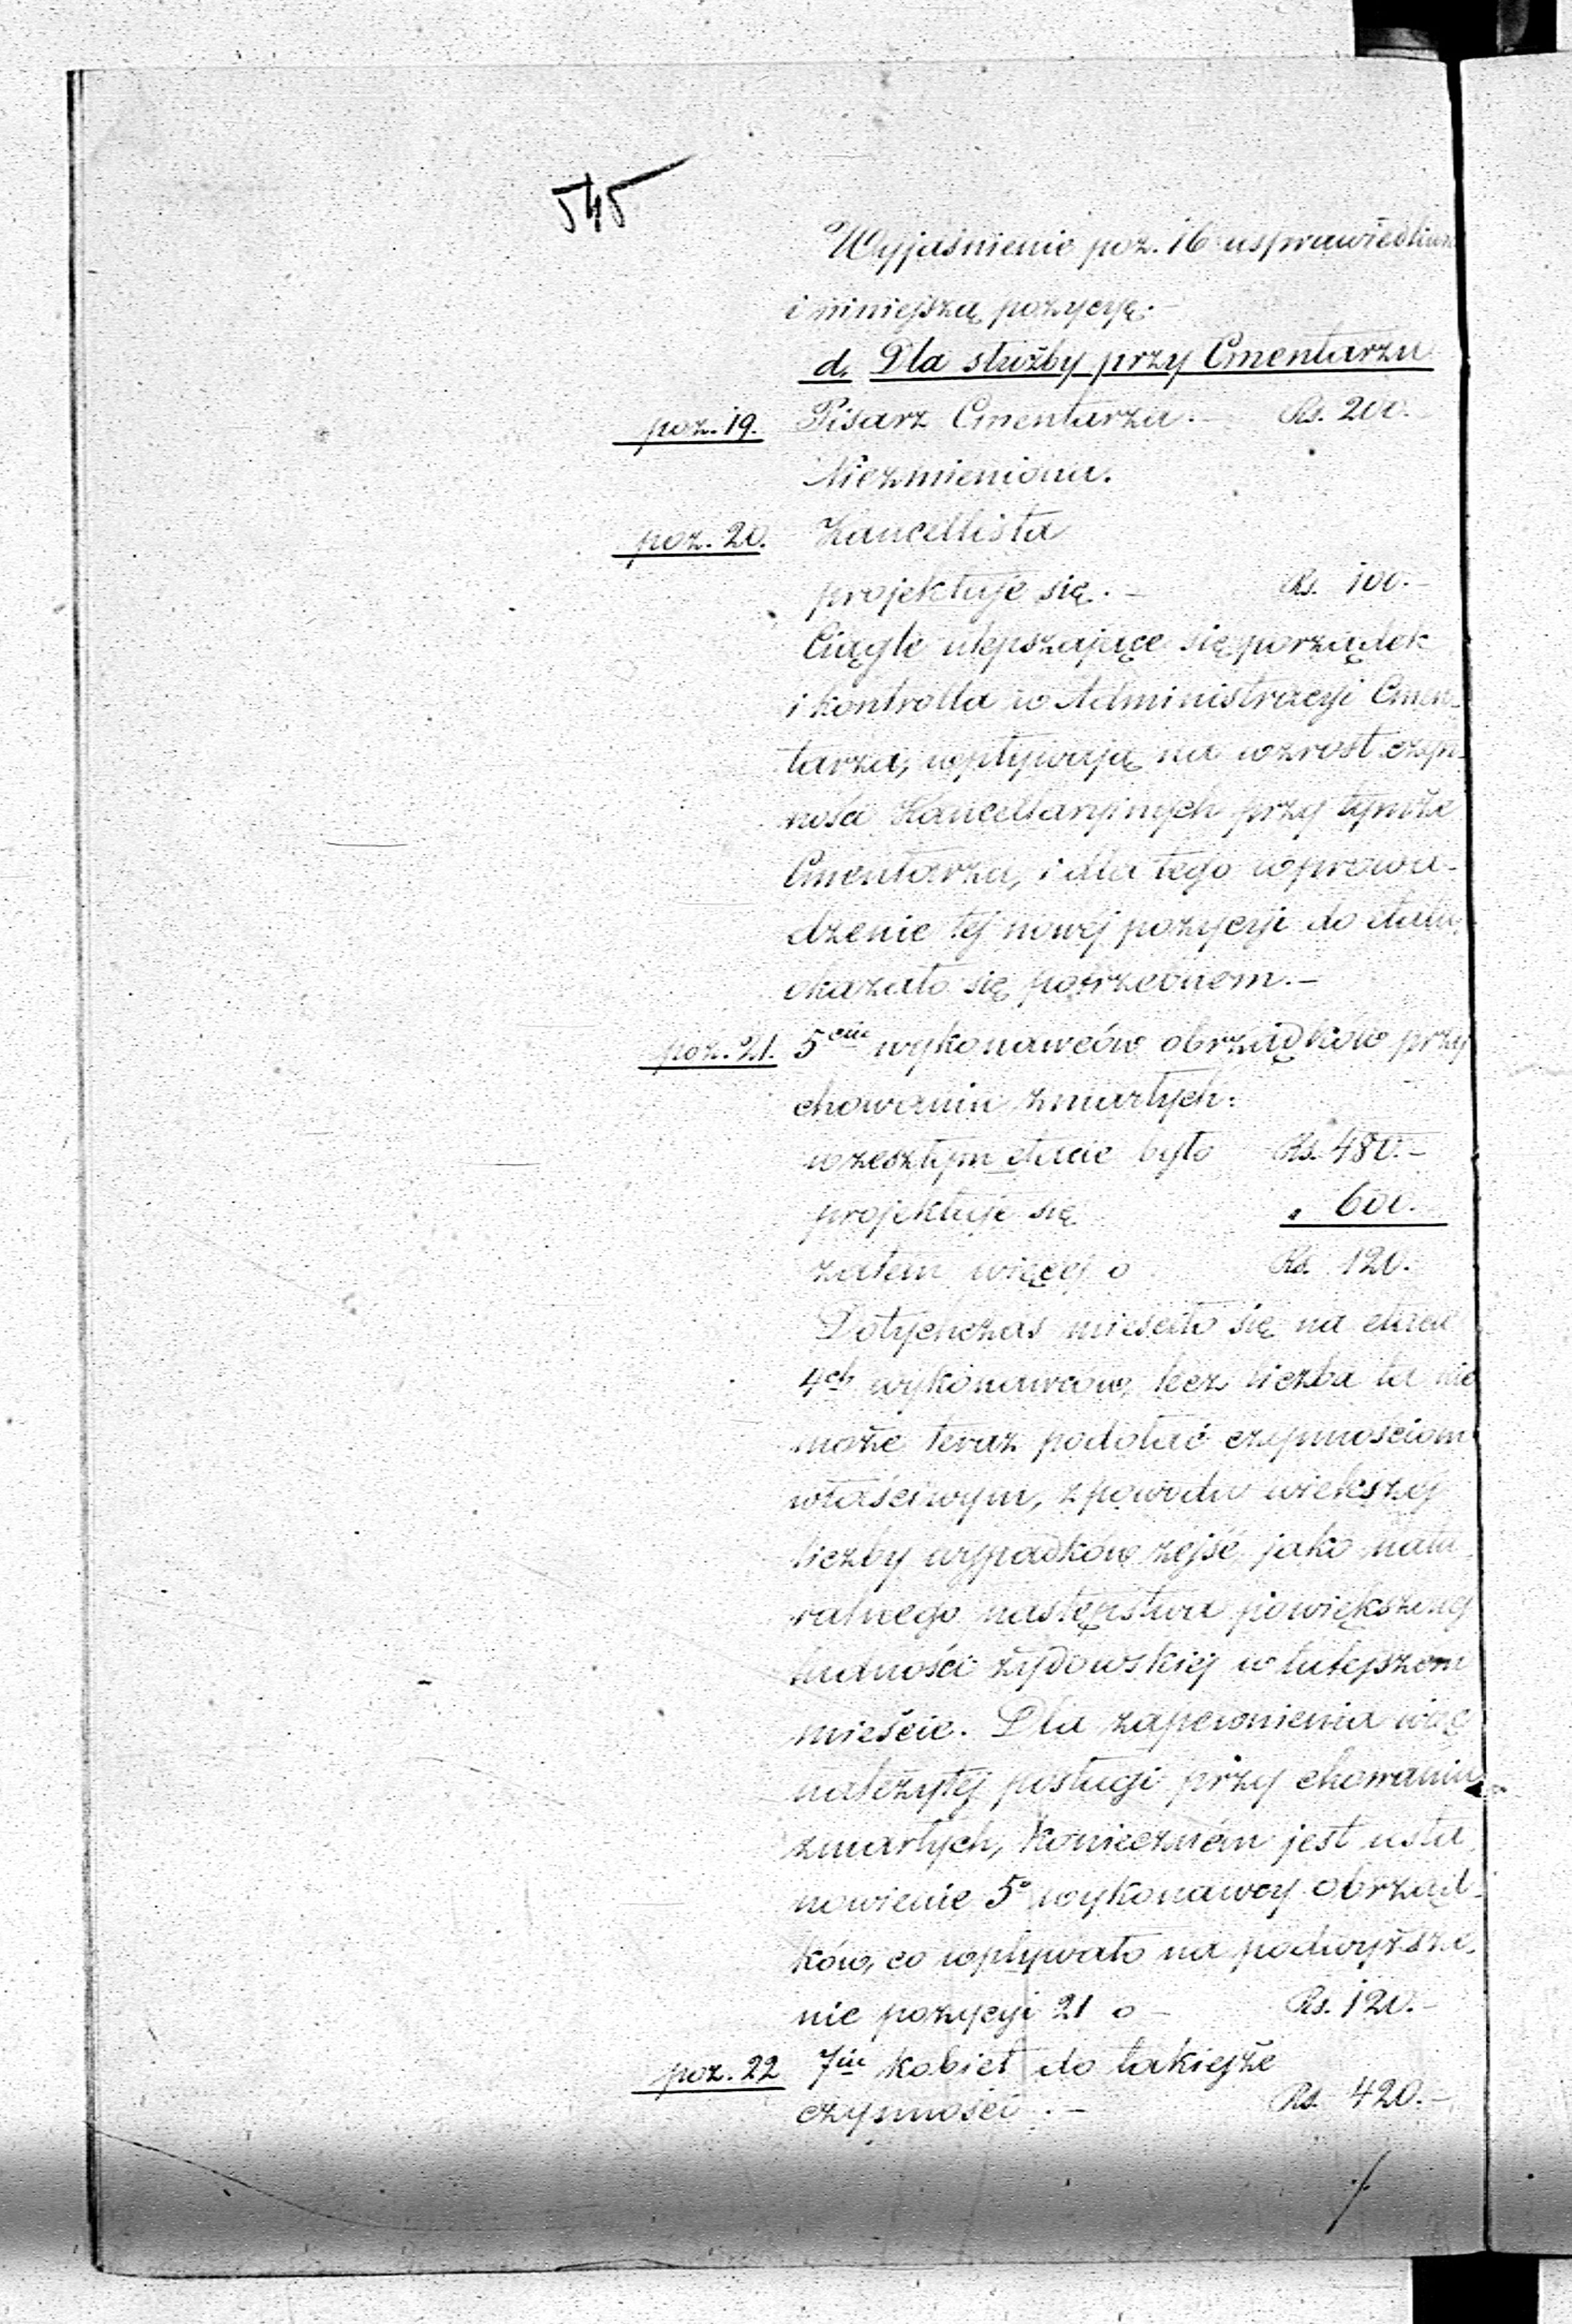 545
Wyjaśnienie poz. 16 usprawiedliwia
i niniejszą pozycyę.—
d. Dla służby przy Cmentarzu
poz. 19. Pisarz Cmentarza.— Rs. 200.—
Niezmieniona.
poz. 20. Kancellista
projektuje się.— Rs. 100.—
Ciągle ulepszające się porządek
i kontrolla w Administracyi Cmen-
tarza, wpływają na wzrost czyn-
ności Kancellaryjnych przy tymże
Cmentarzu, i dla tego wprowa-
dzenie tej nowéj pozycyi do etatu,
okazało się potrzebnem.—
poz. 21. 5ciu wykonawców obrządków przy
chowaniu zmarłych:
w zeszłym etacie było Rs. 480.—
projektuje się „ 600.—
zatem więcej o Rs. 120.—
Dotychczas mieściło się na etacie
4ch wykonawców, lecz liczba ta nie
może teraz podołać czynnościom
właściwym, z powodu większej
liczby wypadków zejść, jako natu-
ralnego następstwa powiększonej
ludności żydowskiej w tutejszem
mieście. Dla zapewnienia więc
należytej posługi przy chowaniu
zmarłych, konieczném jest usta-
nowienie 5o wykonawcy obrząd-
ków, co wpływało na podwyższe-
nie pozycyi 21 o — Rs. 120.—
poz. 22 7iu kobiet do takiejże
czynności.— Rs. 420.—
./.